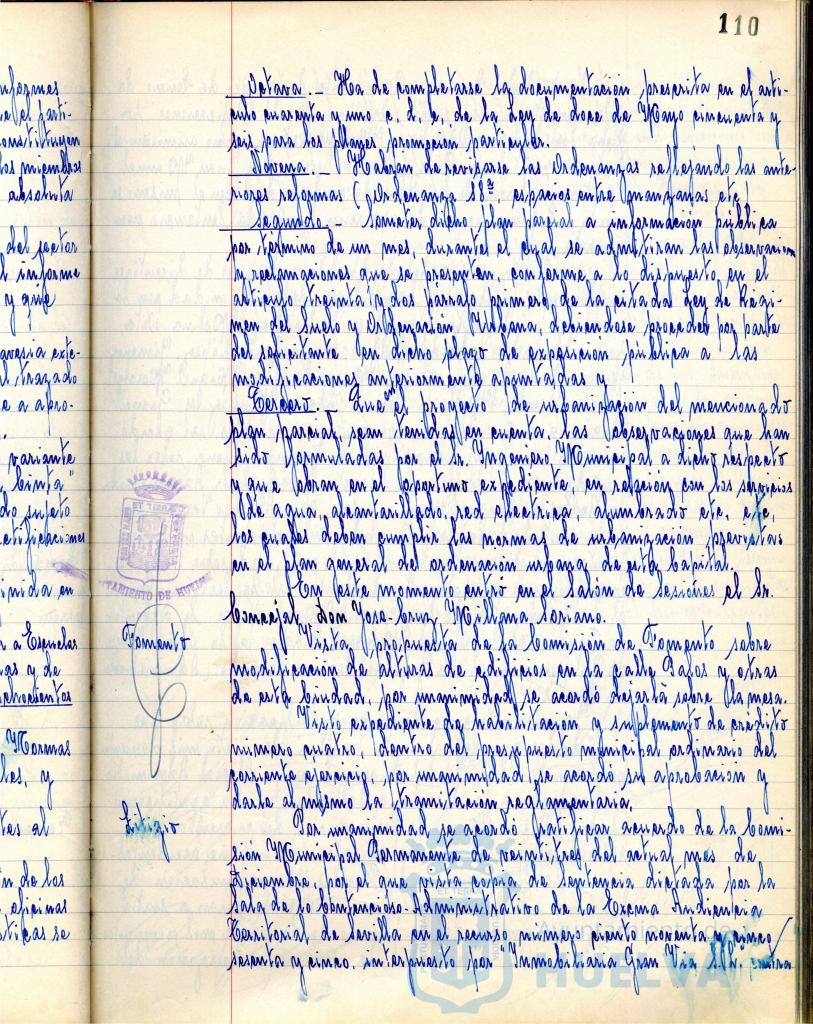 110
nformes
onstituyen
los miembros
absoluta
del sector
l informe
y que
avesia exte-
l trazado
e a apro-
variante
binta"
do sujeto
ctificaciones
inida en
r a Escuelas
as y de
Normas
les, y
tes al
n de las
oficinas
sticas se
Octava.- Ha de completarse la documentación prescrita en el arti-
culo cuarenta y uno c. d. e. de la Ley de doce de Mayo cincuenta y
seis para los planes promoción particular.
Novena.- Habrán de revisarse las Ordenanzas reflejando las ante-
riores reformas (Ordenanza 18ª, espacios entre manzanas etc)
Segundo.- Someter dicho plan parcial a información pública
por término de un mes, durante el cual se admitiran las observacion
y reclamaciones que se presenten, conforme a lo dispuesto en el
articulo treinta y dos párrafo primero de la citada Ley de Regi-
men del Suelo y Ordenación Urbana, debiendose proceder por parte
del solicitante en dicho plazo de exposición pública a las
modificaciones anteriormente apuntadas y
Tercero.- Que en el proyecto de urbanización del mencionado
plan parcial, sean tenidas en cuenta, las observaciones que han
sido formuladas por el Sr. Ingeniero Municipal a dicho respecto
y que obran en el oportuno expediente, en relación con los servicios
de agua, alcantarillado, red electrica, alumbrado etc. etc,
los cuales deben cumplir las normas de urbanización previstas
en el plan general de ordenación urbana de esta Capital.
En este momento entró en el Salón de Sesiones el Sr.
Concejal Don Jose-Cruz Millana Soriano.
Fomento
Vista propuesta de la Comisión de Fomento sobre
modificación de alturas de edificios en la calle Palos y otras
de esta Ciudad, por unanimidad se acordó dejarla sobre la mesa.
Visto expediente de habilitación y suplemento de credito
número cuatro, dentro del presupuesto municipal ordinario del
corriente ejercicio, por unanimidad se acordó su aprobación y
darle al mismo la tramitación reglamentaria.
Litigio
Por unanimidad se acordó ratificar acuerdo de la Comi-
sión Municipal Permanente de veintitres del actual mes de
Diciembre, por el que vista copia de sentencia dictada por la
Sala de lo Contencioso-Administrativo de la Excma Audiencia
Territorial de Sevilla en el recurso número ciento noventa y cinco
sesenta y cinco, interpuesto por "Inmobiliaria Gran Via S.A."
AYUNTAMIENTO DE HUELVA
Ayuntamiento de
HUELVA